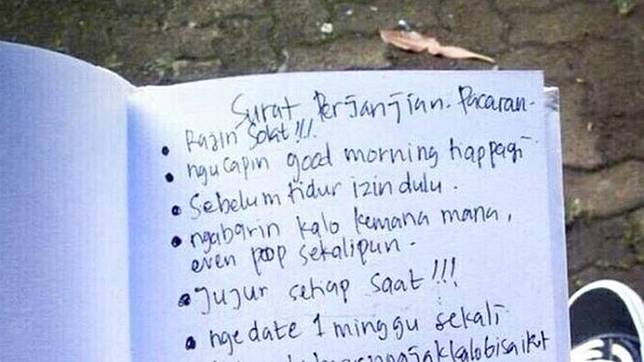 Surat Perjanjian. Pacaran.
• Rajin Solat!!!
• ngucapin good morning tiap pagi
• Sebelum tidur izin dulu.
• ngabarin kalo kemana mana,
even poop sekalipun.
• Jujur setiap saat!!!
• ngedate 1 minggu sekali
kalo bisa ikut